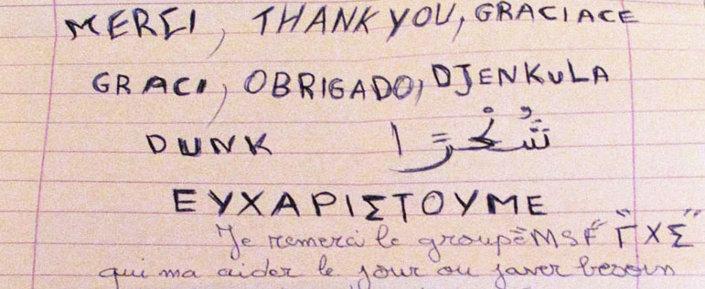 MERCI, THANK YOU, GRACIACE
GRACI, OBRIGADO, DJENKULA
DUNK شُكْرًا
ΕΥΧΑΡΙΣΤΟΥΜΕ
Je remerci le groupe MSF "ΓΧΣ"
qui ma aider le jour ou javer besoin